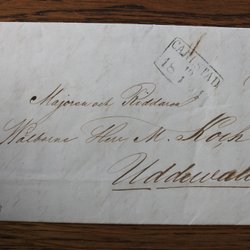 CARLSTAD
18
Majoren och Riddaren
Wälborne Herr M. Koch
Uddewal